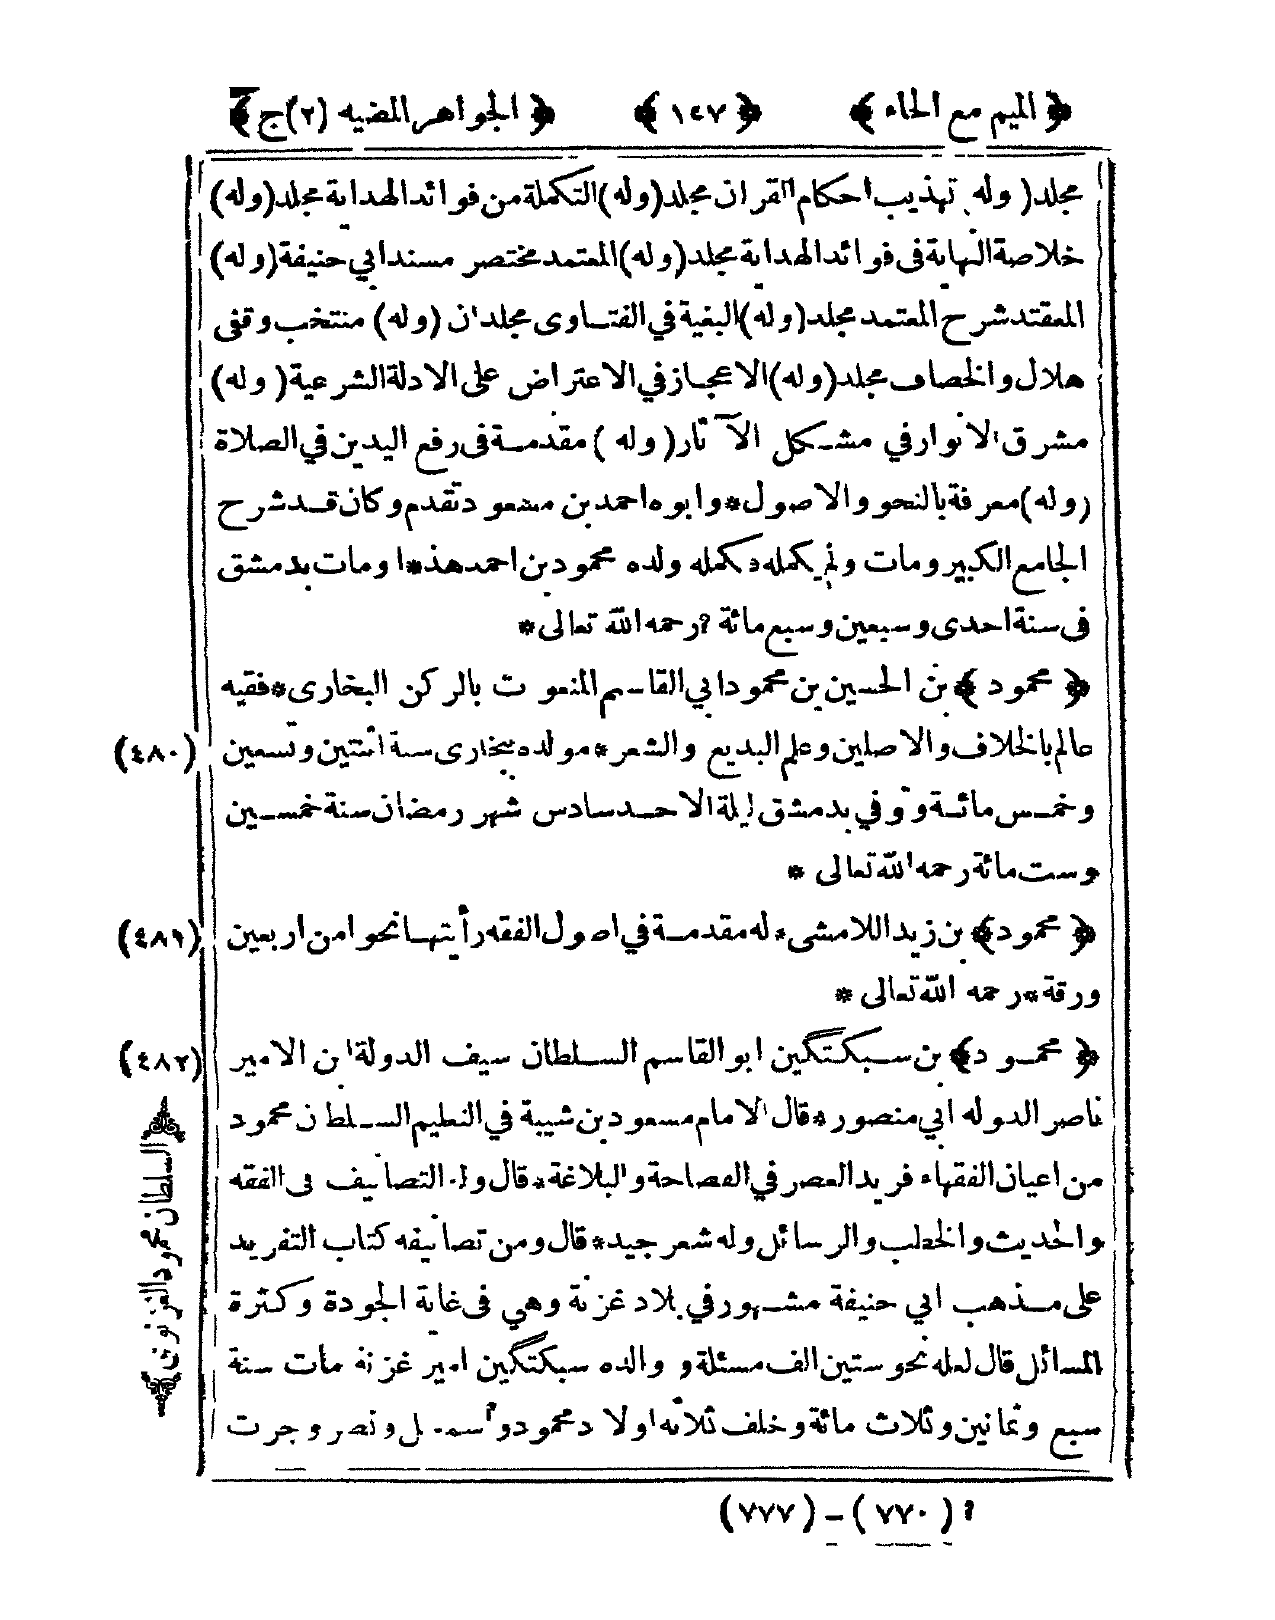 ﴿ الميم مع الحاء ﴾ ﴿ ١٤٧ ﴾ ﴿ الجواهر المضيه (٢) ج ﴾
مجلد (وله) تهذيب احكام القران مجلد (وله) التكملة من فوائد الهداية مجلد (وله)
خلاصة النهاية فى فوائد الهداية مجلد (وله) المعتمد مختصر مسند ابي حنيفة (وله)
المعقتد شرح المعتمد مجلد (وله) البغية في الفتاوى مجلدان (وله) منتخب وقفى
هلال والخصاف مجلد (وله) الاعجاز في الاعتراض على الادلة الشرعية (وله)
مشرق الانوار في مشكل الآثار (وله) مقدمة فى رفع اليدين في الصلاة
(وله) معرفة بالنحو والاصول * وابوه احمد بن مسعود تقدم وكان قد شرح
الجامع الكبير ومات ولم يكمله فكمله ولده محمود بن احمد هذا * ومات بدمشق
فى سنة احدى وسبعين وسبع مائة ? رحمه الله تعالى *
﴿ محمود ﴾ بن الحسين بن محمود ابي القاسم المنعوت بالركن البخارى * فقيه
عالم بالخلاف والاصلين وعلم البديع والشعر * مولده ببخارى سنة اثنتين وتسعين (٤٨٠)
وخمس مائة وتوفي بدمشق ليلة الاحد سادس شهر رمضان سنة خمسين
وست مائة رحمه الله تعالى *
﴿ محمود ﴾ بن زيد اللامشى * له مقدمة في اصول الفقه رأيتها نحوا من اربعين (٤٨١)
ورقة * رحمه الله تعالى *
﴿ محمود ﴾ بن سبكتگين ابو القاسم السلطان سيف الدولة ابن الامير (٤٨٢)
ناصر الدوله ابي منصور * قال الامام مسعود بن شيبة في التعليم السلطان محمود
من اعيان الفقهاء فريد العصر في الفصاحة والبلاغة * قال وله التصانيف فى الفقه
والحديث والخطب والرسائل وله شعر جيد * قال ومن تصانيفه كتاب التفريد
على مذهب ابي حنيفة مشهور في بلاد غزنة وهي فى غاية الجودة وكثرة
المسائل قال لعله نحو ستين الف مسئلة و والده سبكتگين امير غزنة مات سنة
سبع وثمانين وثلاث مائة وخلف ثلاثه اولاد محمود و ونصر وجرت
﴿ السلطان محمود الغزنوى ﴾
? (٧٧٠) ــ (٧٧٧)